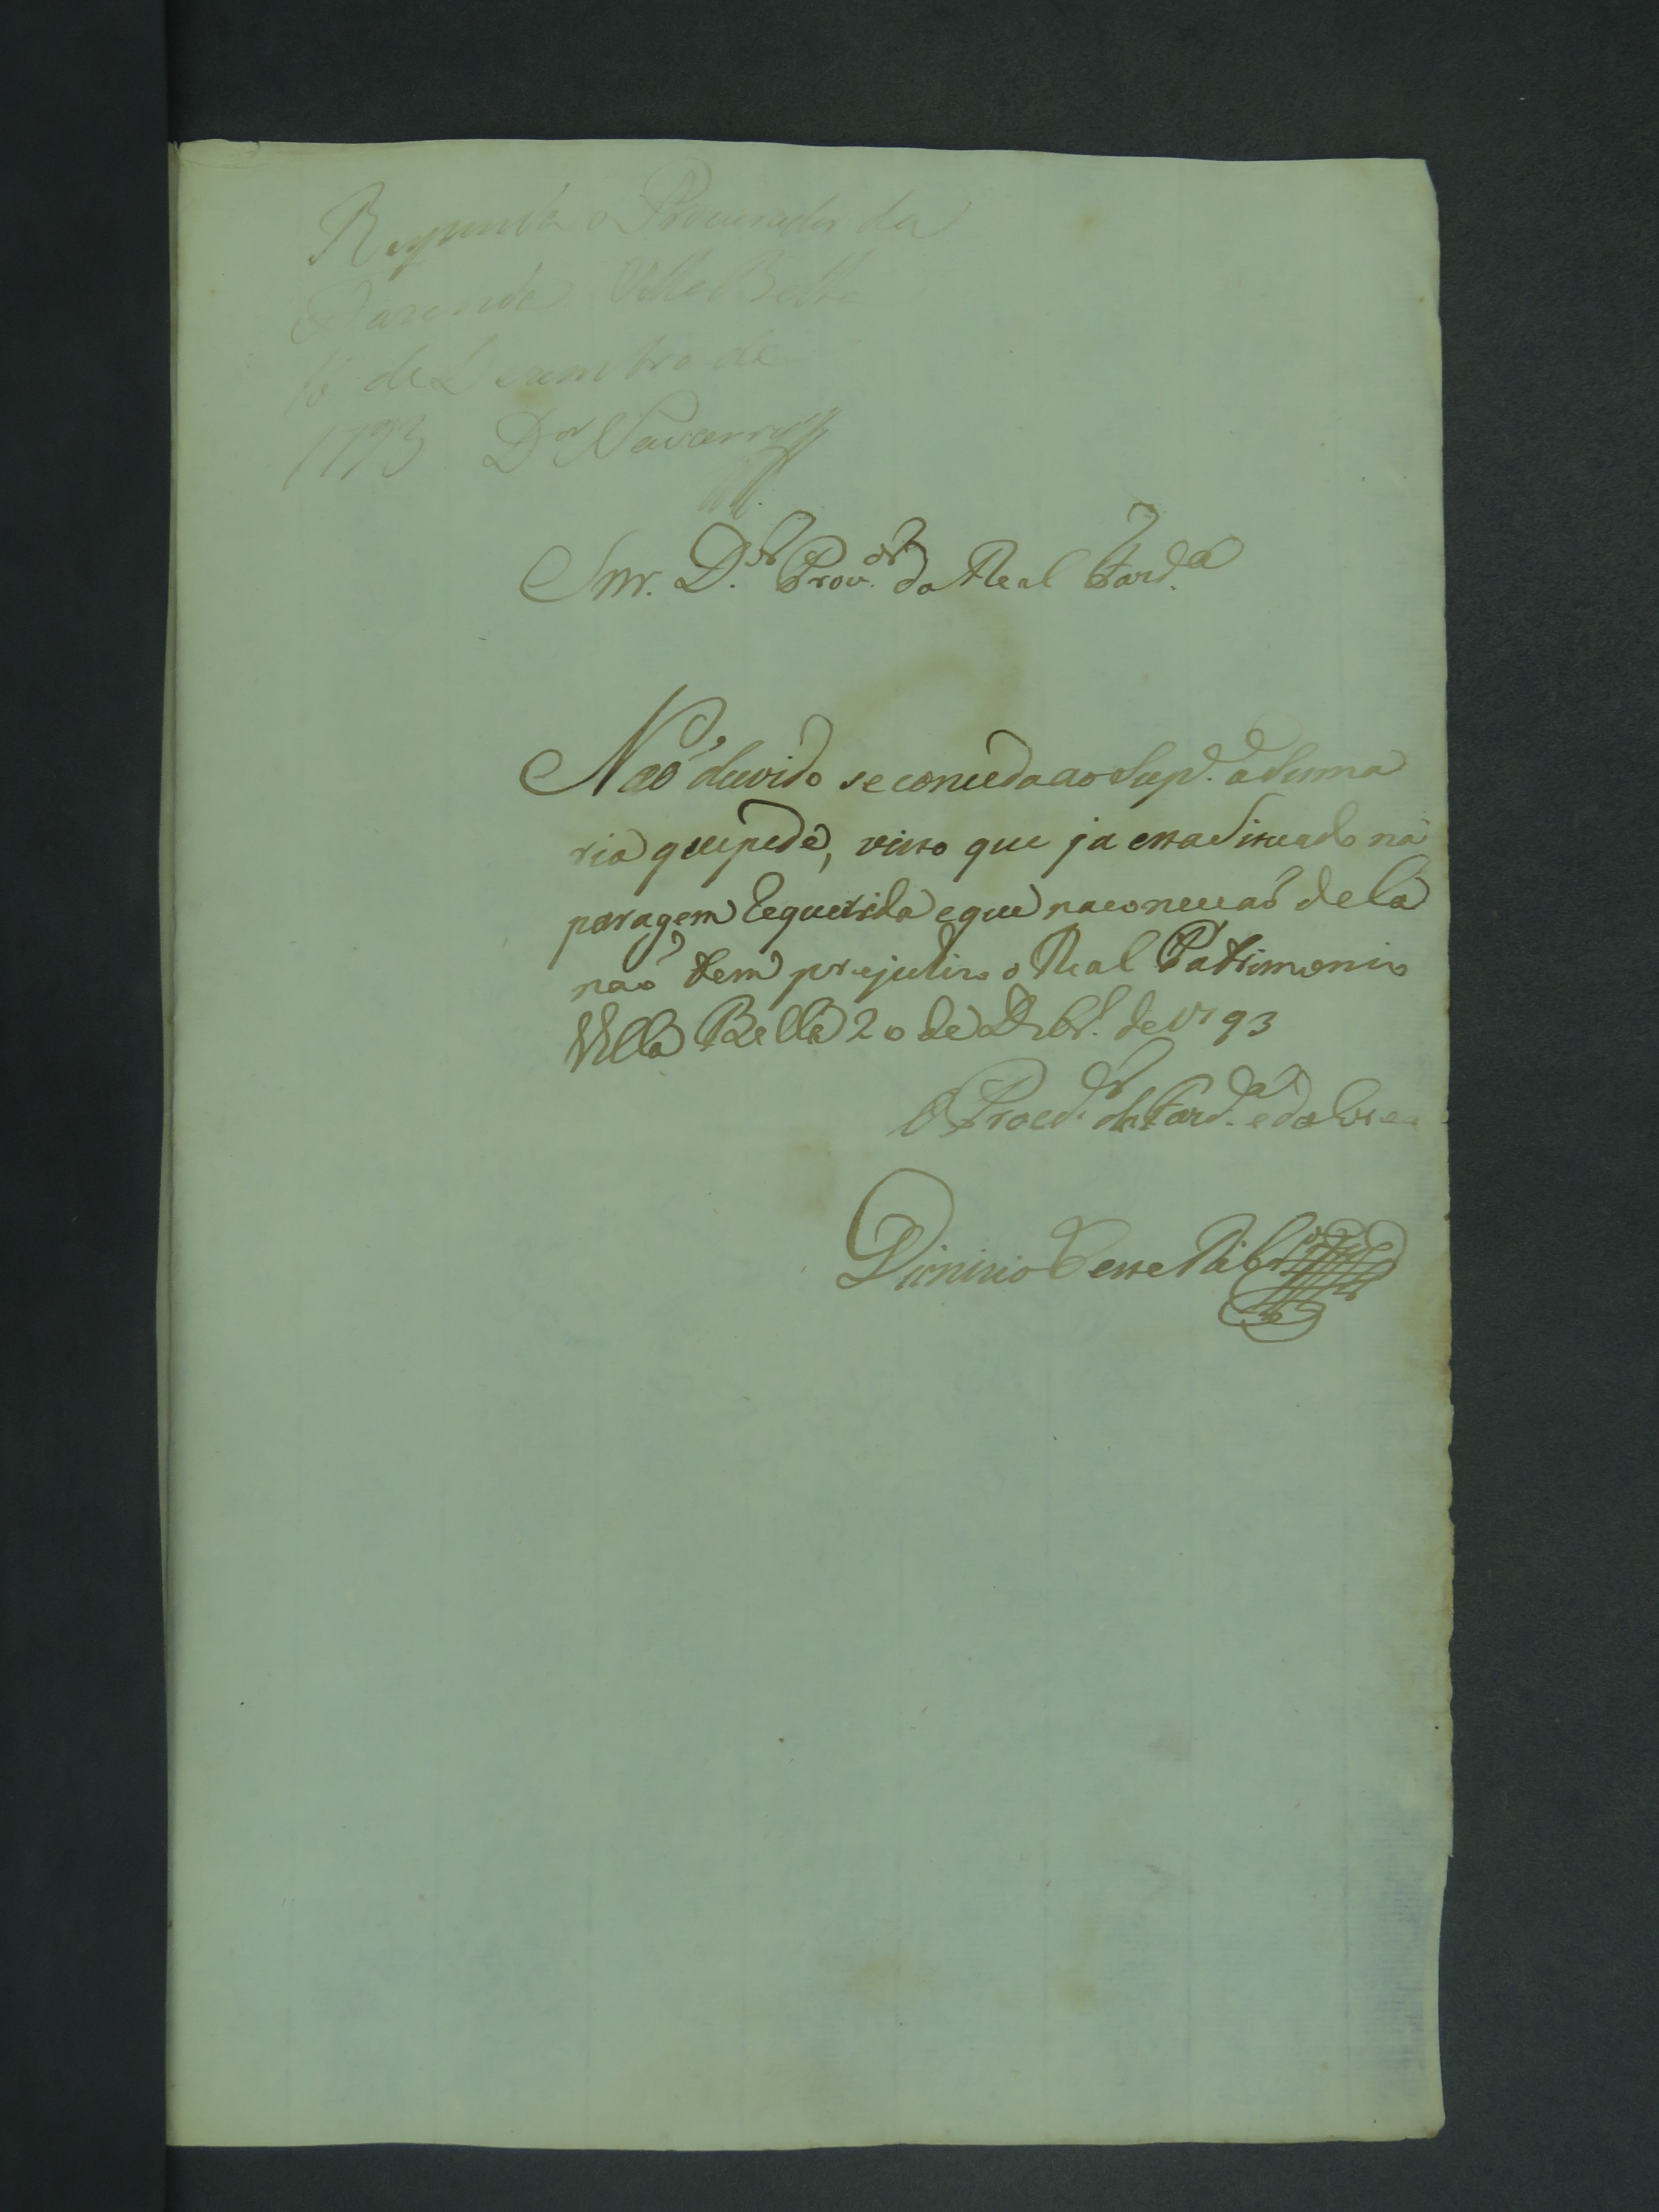 Responda o Procurador da
Fazenda Villa Bella
de Dezembro de
1793 D.or Navarro
Snr. D.or Prov.or da Real Fazd.a
Naõ duvido se conceda ao Sup.e a Sesma
ria que pede, visto que ja esta Situado na
paragem Requerida e que na concessaõ dela
naõ tem prejuizo o Real Patrimonio
Villa Bella 20 de Dezbr.o de 1793
O Procd.or da Fazd.a e da Coroa
Dionisio